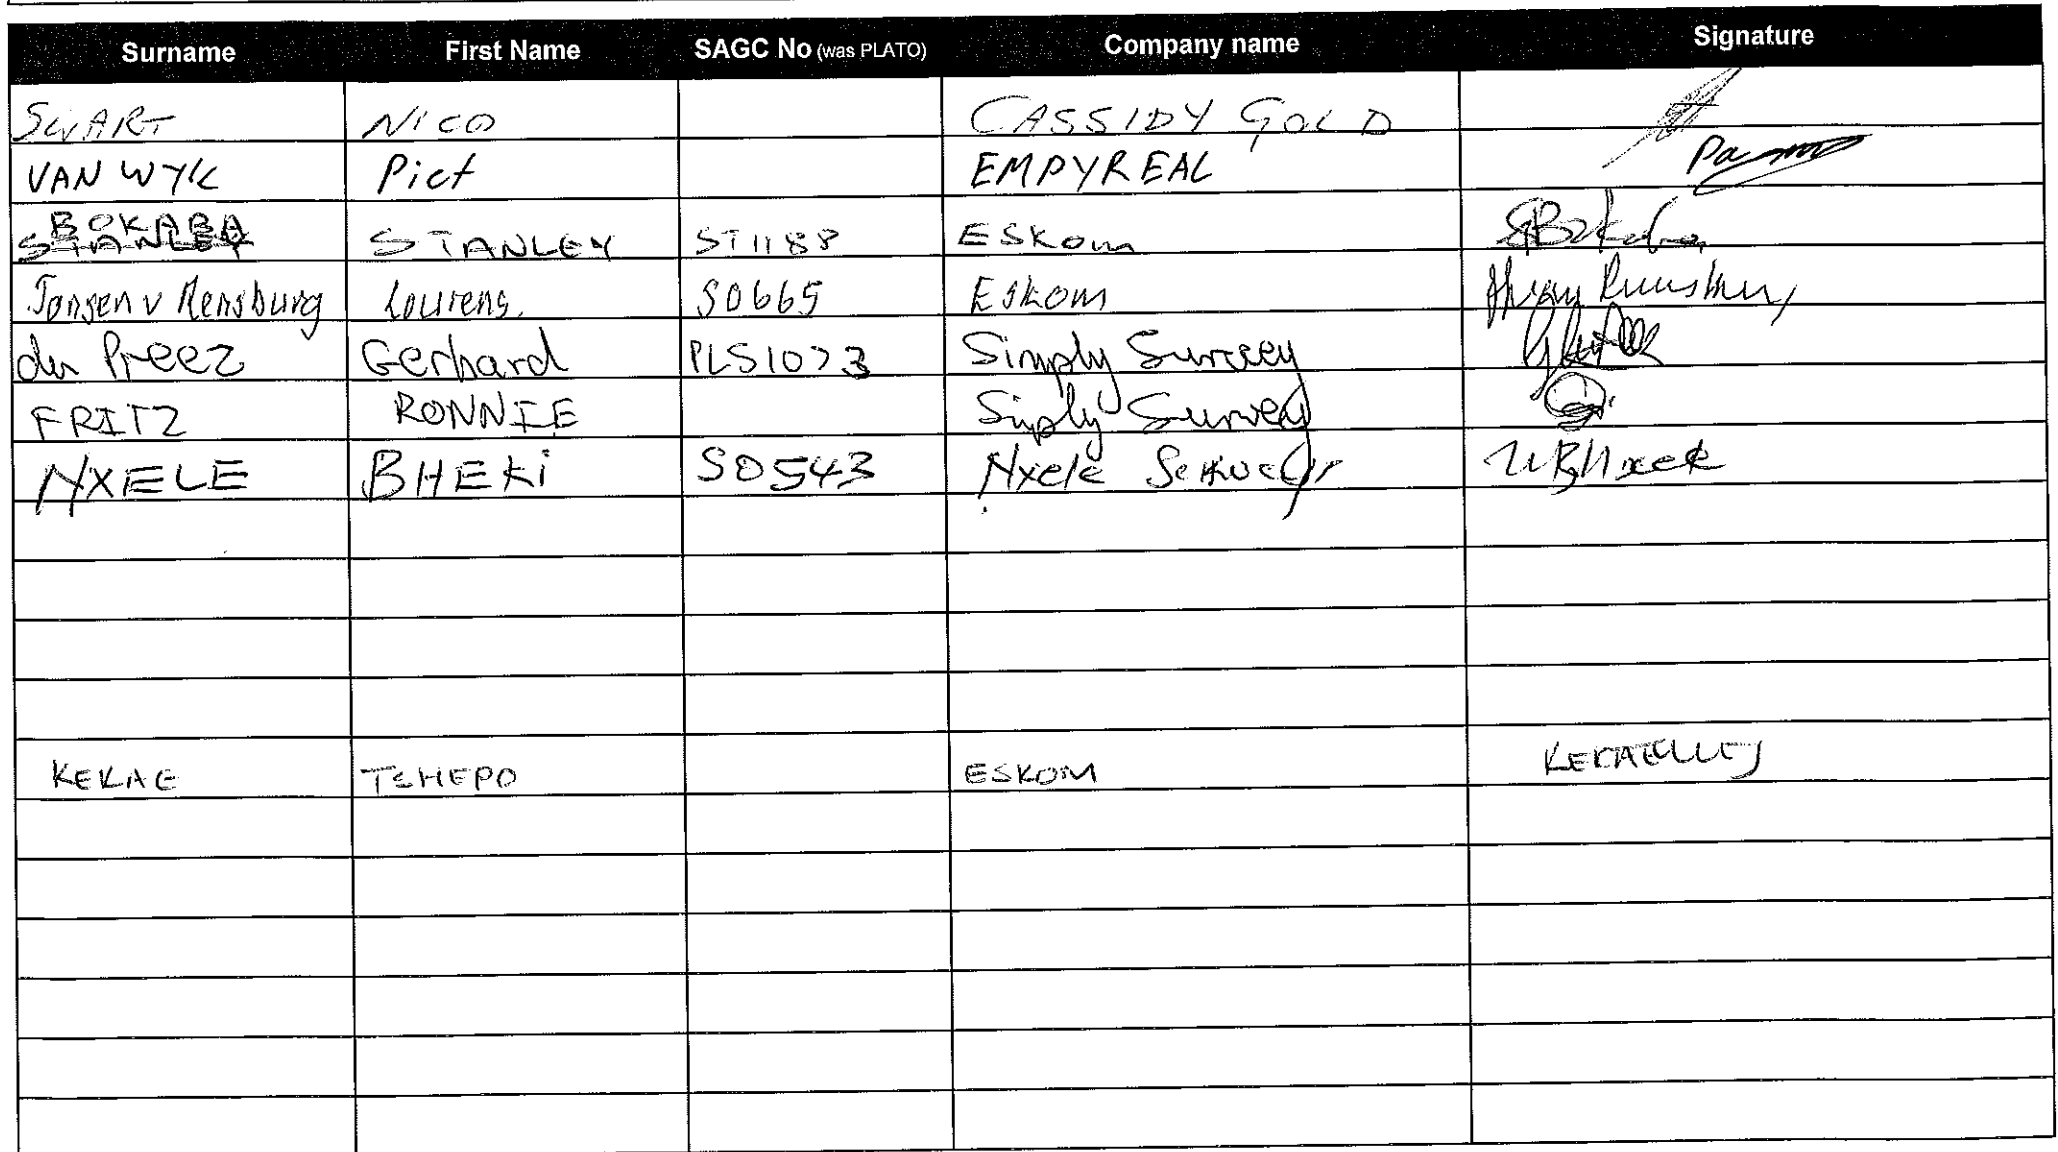 Surname First Name SAGC No (was PLATO) Company name Signature
SWART NICO CASSIDY GOLD
VAN WYK Piet EMPYREAL
BOKABA
STANLEY STANLEY ST1188 ESKom
Jansen v Rensburg Lourens. S0665 Eskom
du Preez Gerhard PLS1073 Simply Survey
FRITZ RONNIE Siply Survey
NXELE BHEKi S0543 Nxele
KEKAE TSHEPO ESKOM